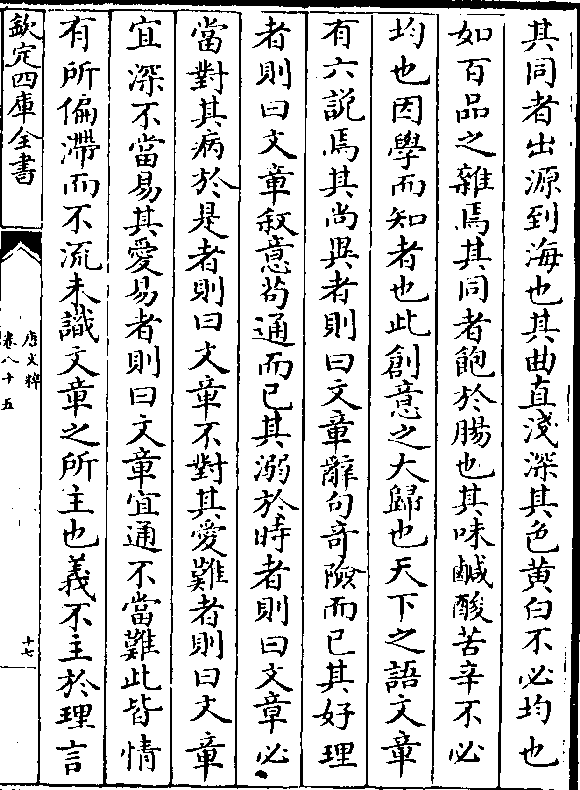 其同者出源到海也其曲直淺深其色黄白不必均也
如百品之雜焉其同者飽於腸也其味鹹酸苦辛不必
均也因學而知者也此創意之大歸也天下之語文章
有六説焉其尚異者則曰文章辭句奇險而已其好理
者則曰文章叙意苟通而已其溺於時者則曰文章必
當對其病於是者則曰文章不對其愛難者則曰文章
宜深不當易其愛易者則曰文章宜通不當難此皆情
有所偏滯而不流未識文章之所主也義不主於理言
欽定四庫全書
唐文粹
卷八十五
十七